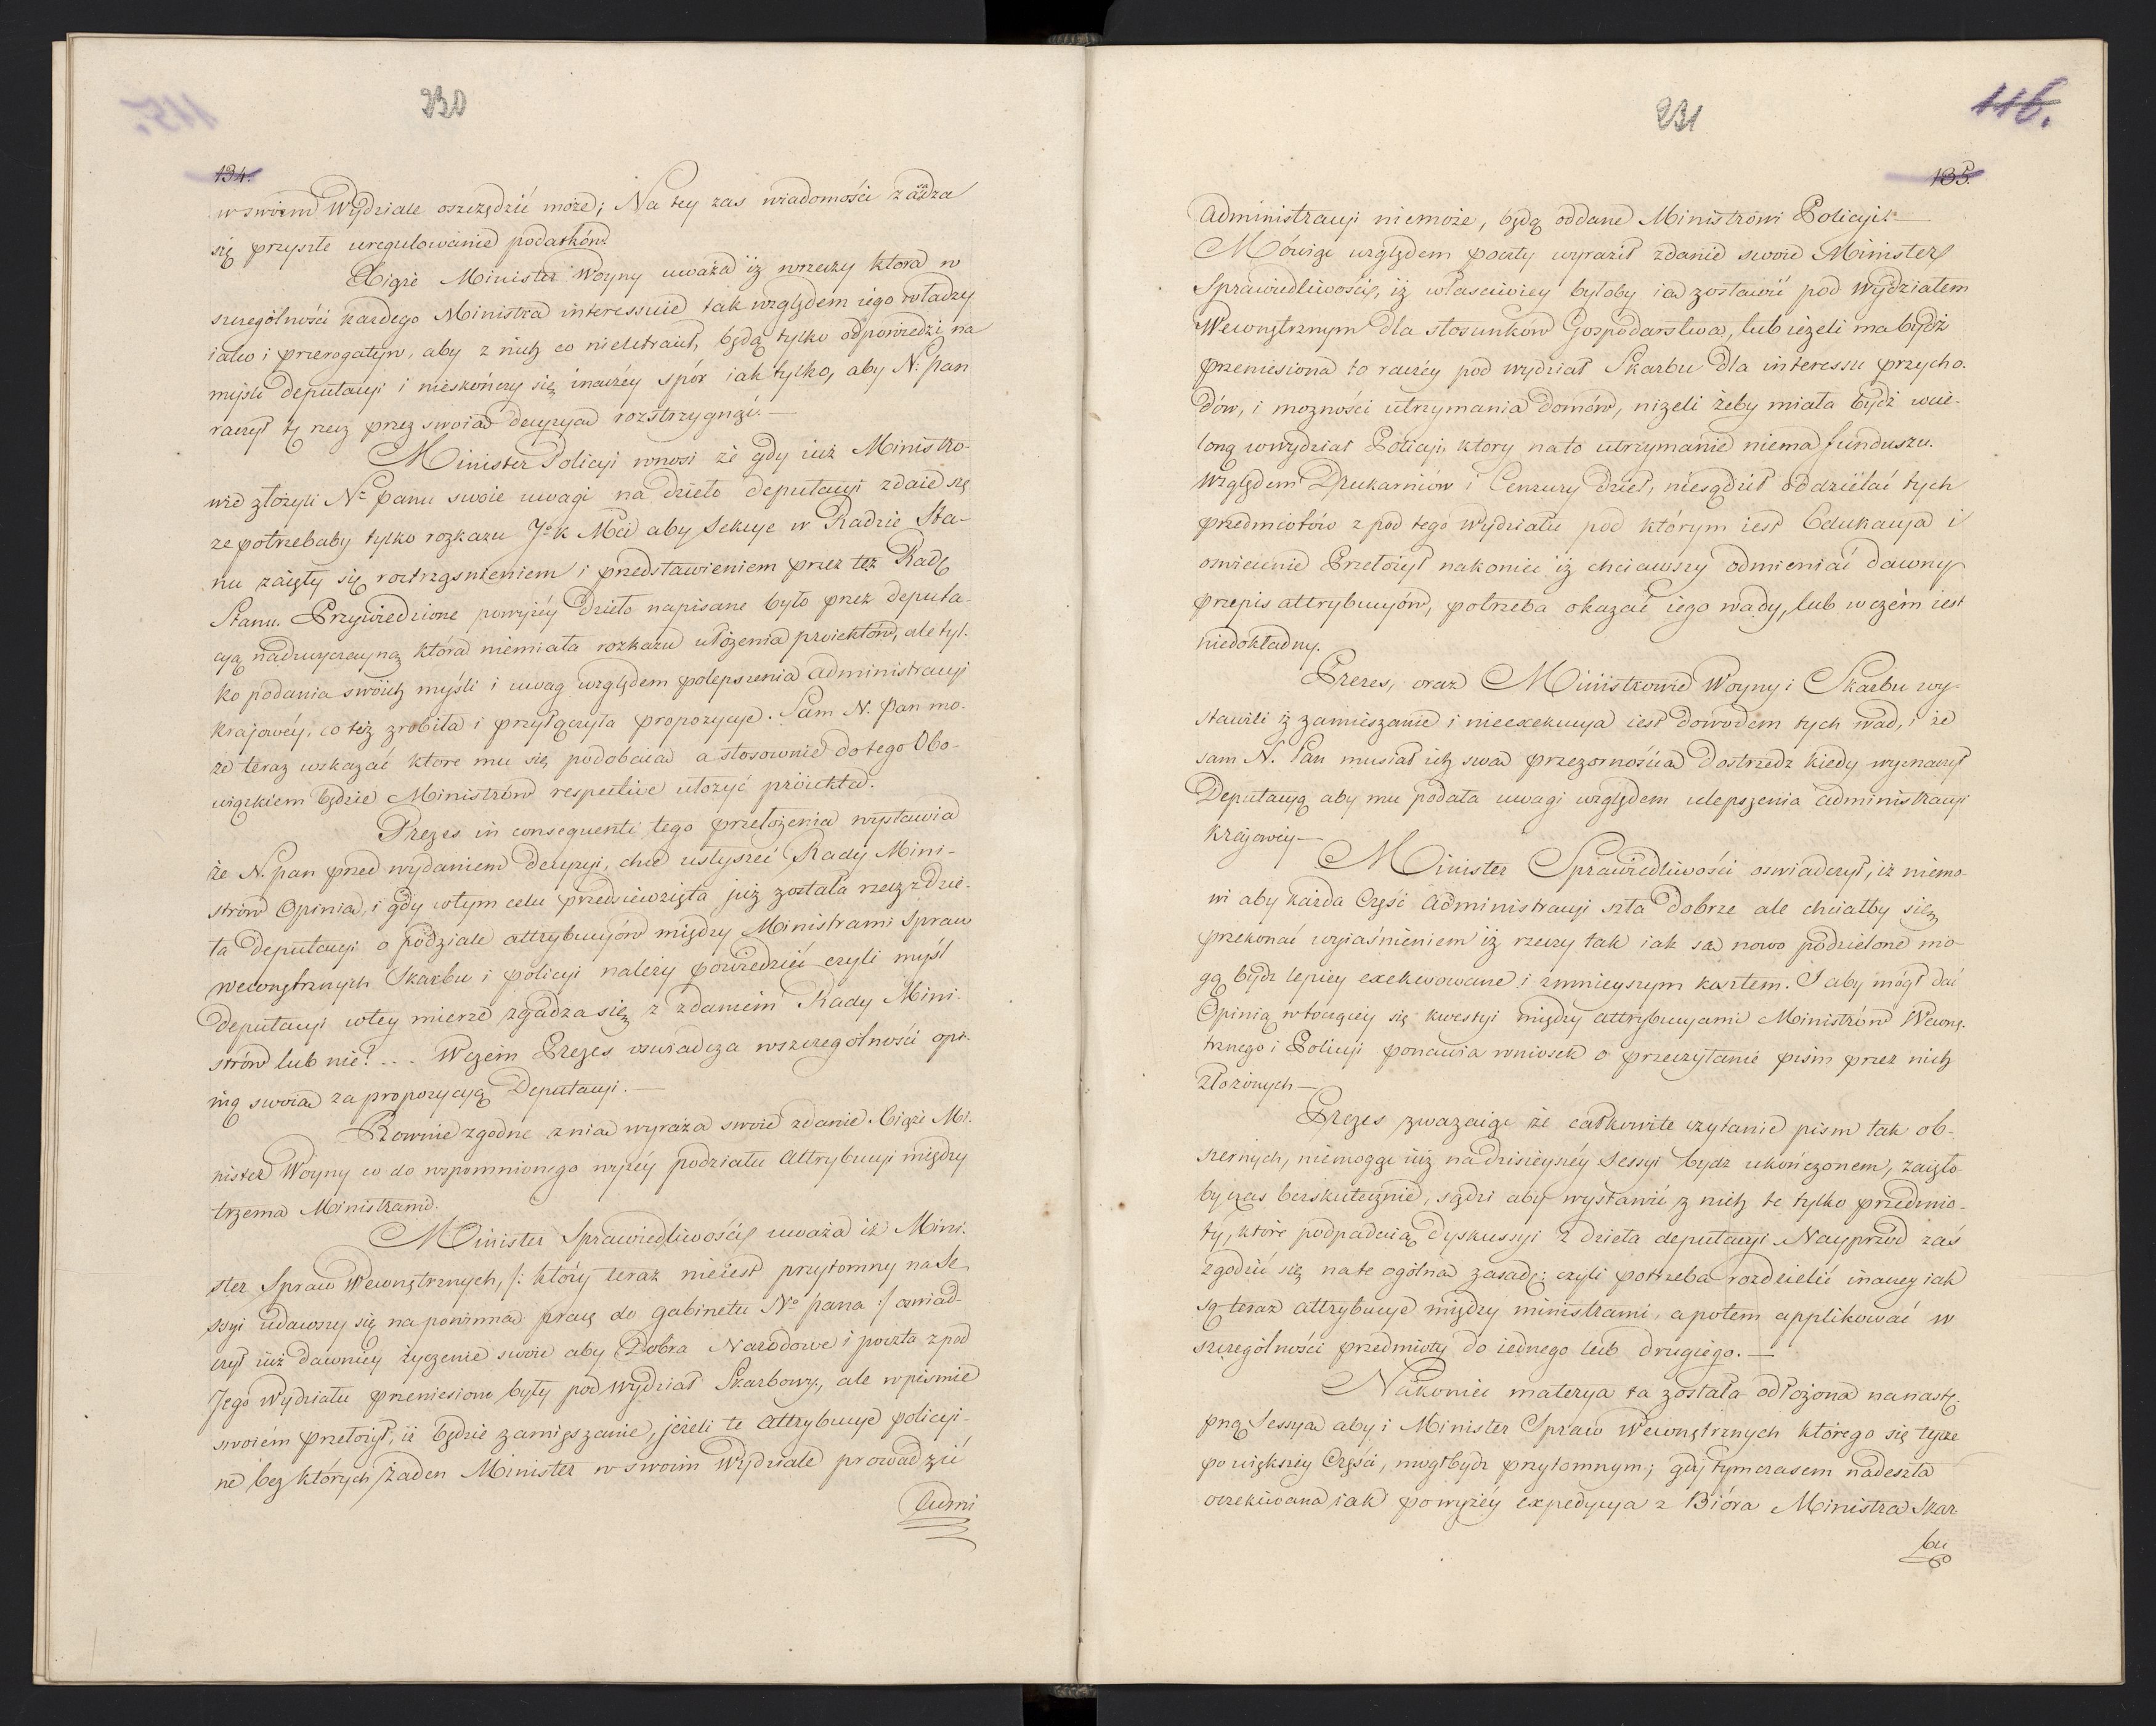 230
134.
w swoiem Wydziale oszczędzić może; Na tey zas wiadomości zasadza
się przyszłe uregulowanie podatków.
Xiąże Minister Woyny uważa iż w rzeczy ktora w
szczególności każdego Ministra interessuie tak względem iego władzy
iako i prerogatyw, aby z nich co nieutracił, będą tylko odpowiedzi na
myśli deputacyi i nieskończy się inaczéy spór iak tylko, aby N. Pan
raczył tę rzecz przez swoią decyzyą rozstrzygnąć. —
Minister Policyi wnosi że gdy iuż Ministro-
wie złożyli N. Panu swoie uwagi na dzieło deputacyi zdaie się
ze potrzebaby tylko rozkazu J. K Mci aby Sekcye w Radzie Sta-
nu zaięły się roztrząśnieniem i przedstawieniem przez też Radę
Stanu. Przywiedzione powyżéy dzieło napisane było przez deputa-
cyą nadzwyczayną która niemiała rozkazu ułożenia proiektów, ale tyl-
ko podania swoich myśli i uwag względem polepszenia administracyi
krajowéy, co też zrobiła i przyłączyła propozycye. Sam N. Pan mo-
że teraz wskazać ktore mu się podobaią a stosownie do tego Obo-
wiązkiem będzie Ministrów respective ułożyć proiekta.
Prezes in consequenti tego przełożenia wystawia
że N. Pan przed wydaniem decyzyi, chce usłyszeć Rady Mini-
strów Opinią, i gdy w tym celu przedsiewzięta już została rzecz z dzie-
ła Deputacyi o podziale attrybucyów między Ministrami Spraw
wewnętrznych Skarbu i policyi należy powiedzieć czyli myśl
Deputacyi w tey mierze zgadza się z zdaniem Rady Mini-
strów lub nie? ... Wczém Prezes oswiadcza w szczególności opi-
nią swoią za propozycyą Deputacyi. —
Rownie zgodne z nią wyraża swoie zdanie Xiąże Mi-
nister Woyny co do wspomnionego wyżéy podziału Attrybucyi między
trzema Ministrami.
Minister Sprawiedliwości uważa iż Mini-
ster Spraw Wewnętrznych, /: który teraz nieiest przytomny na Se-
ssyi udawszy się na powinną pracę do gabinetu N. Pana :/ oswiad-
czył iuż dawniey życzenie swoie aby Dobra Narodowe i poczta z pod
Jego Wydziału przeniesione były pod Wydział Skarbowy, ale w pismie
swoiém przełożył, iż będzie zamięszanie, jeżeli te Attrybucye policyi-
ne bez których żaden Minister w swoim Wydziale prowadzić
Admi
231
116.
135.
Administracyi niemoże, będą oddane Ministrowi Policyi. —
Mówiąc względem poczty wyraził zdanie swoie Minister
Sprawiedliwości, iż właściwiey byłoby ią zostawić pod Wydziałem
Wewnętrznym dla stosunków Gospodarstwa, lub ieżeli ma bydź
przeniesiona to raczéy pod wydział Skarbu dla interessu przycho-
dów, i możności utrzymania domów, niżeli żeby miała bydź wcie-
loną w wydział Policyi, ktory na to utrzymanie niema funduszu.
Względem Drukarniów i Cenzury dzieł, niesądził oddzielać tych
przedmiotów z pod tego Wydziału pod którym iest Edukacya i
oświecenie Przełożył nakoniec iż chciawszy odmieniać dawny
przepis attrybucyów, potrzeba okazać iego wady, lub w czém iest
niedokładny.
Prezes, oraz Ministrowie Woyny i Skarbu wy-
stawili iż zamieszanie i nieexekucya iest dowodem tych wad, i że
sam N. Pan musiał ich swą przezornością dostrzedz kiedy wyznaczył
Deputacyą aby mu podała uwagi względem ulepszenia administracyi
krajowéy —
Minister Sprawiedliwości oswiadczył, iż niemo-
wi aby każda Część Administracyi szła dobrze ale chciałby się
przekonać wyiaśnieniem iż rzeczy tak iak są nowo podzielone mo-
gą bydz lepiey exekwowane i zmnieyszym kosztem. I aby mógł dać
Opinią w toczącéy się kwestyi między attrybucyami Ministrów Wewnę-
trznego i Policyi ponawia wniosek o przeczytanie pism przez nich
złożonych —
Prezes zważaiąc że całkowite czytanie pism tak ob-
szernych, niemogąc iuż na dzisieyszéy Sessyi bydź ukończonem, zaięło-
by czas bezskutecznie, sądzi aby wystawić z nich te tylko przedmio-
ty, które podpadaią dyskussyi z dzieła deputacyi. Nayprzód zaś
zgodzić się na te ogólną zasadę; czyli potrzeba rozdzielić inaczey iak
są teraz attrybucye między ministrami, a potem applikować w
szczególności przedmioty do iednego lub drugiego. —
Nakoniec materya ta została odłożona na nastę-
pną Sessyą aby i Minister Spraw Wewnętrznych którego się tycze
po większéy Części, mógł bydz przytomnym; gdy tymczasem nadeszła
oczekiwana iak powyżéy expedycya z Bióra Ministra Skar-
bu